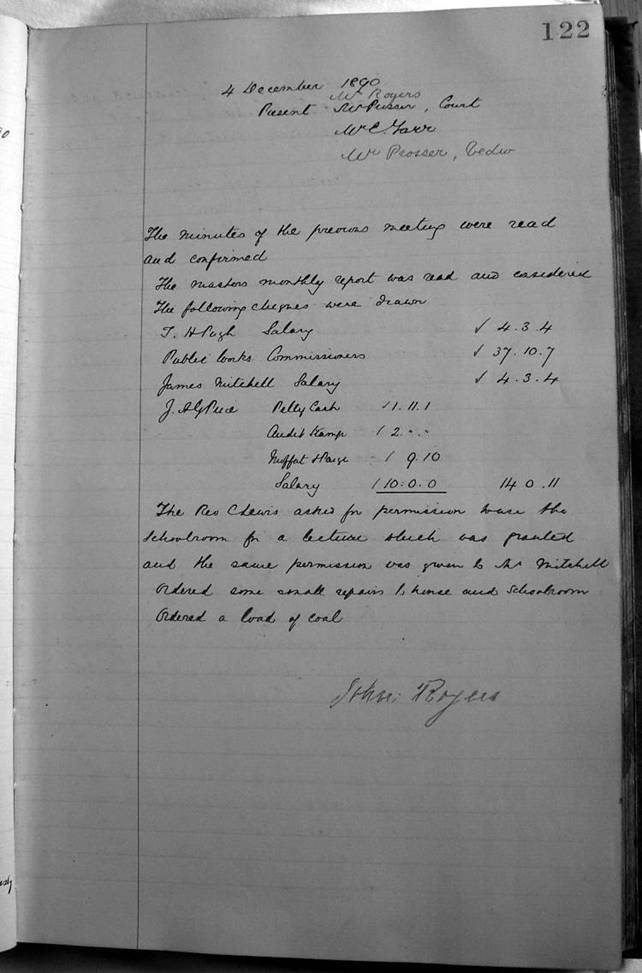 122
4 December 1890
Mr Rogers
Present Mr Prosser, Court
Mr C. Farr
Mr Prosser, Cedw
The minutes of the previous meeting were read
and confirmed
The masters monthly report was read and considered
The following cheques were drawn
T. H Pugh Salary √ 4.3.4
Public Works Commissioners √ 37.10.7
James Mitchell Salary √ 4.3.4
J. A G Price Petty Cash √ 1.11.1
Audit Stamp / 2 . - . -
Moffat & Paige / 9.10
Salary / 10.0.0 14 0.11
The Rev C Lewis asked for permission to use the
Schoolroom for a lecture which was granted
and the same permission was given to Mr Mitchell
Ordered some small repairs to house and Schoolroom
Ordered a load of coal
John Rogers